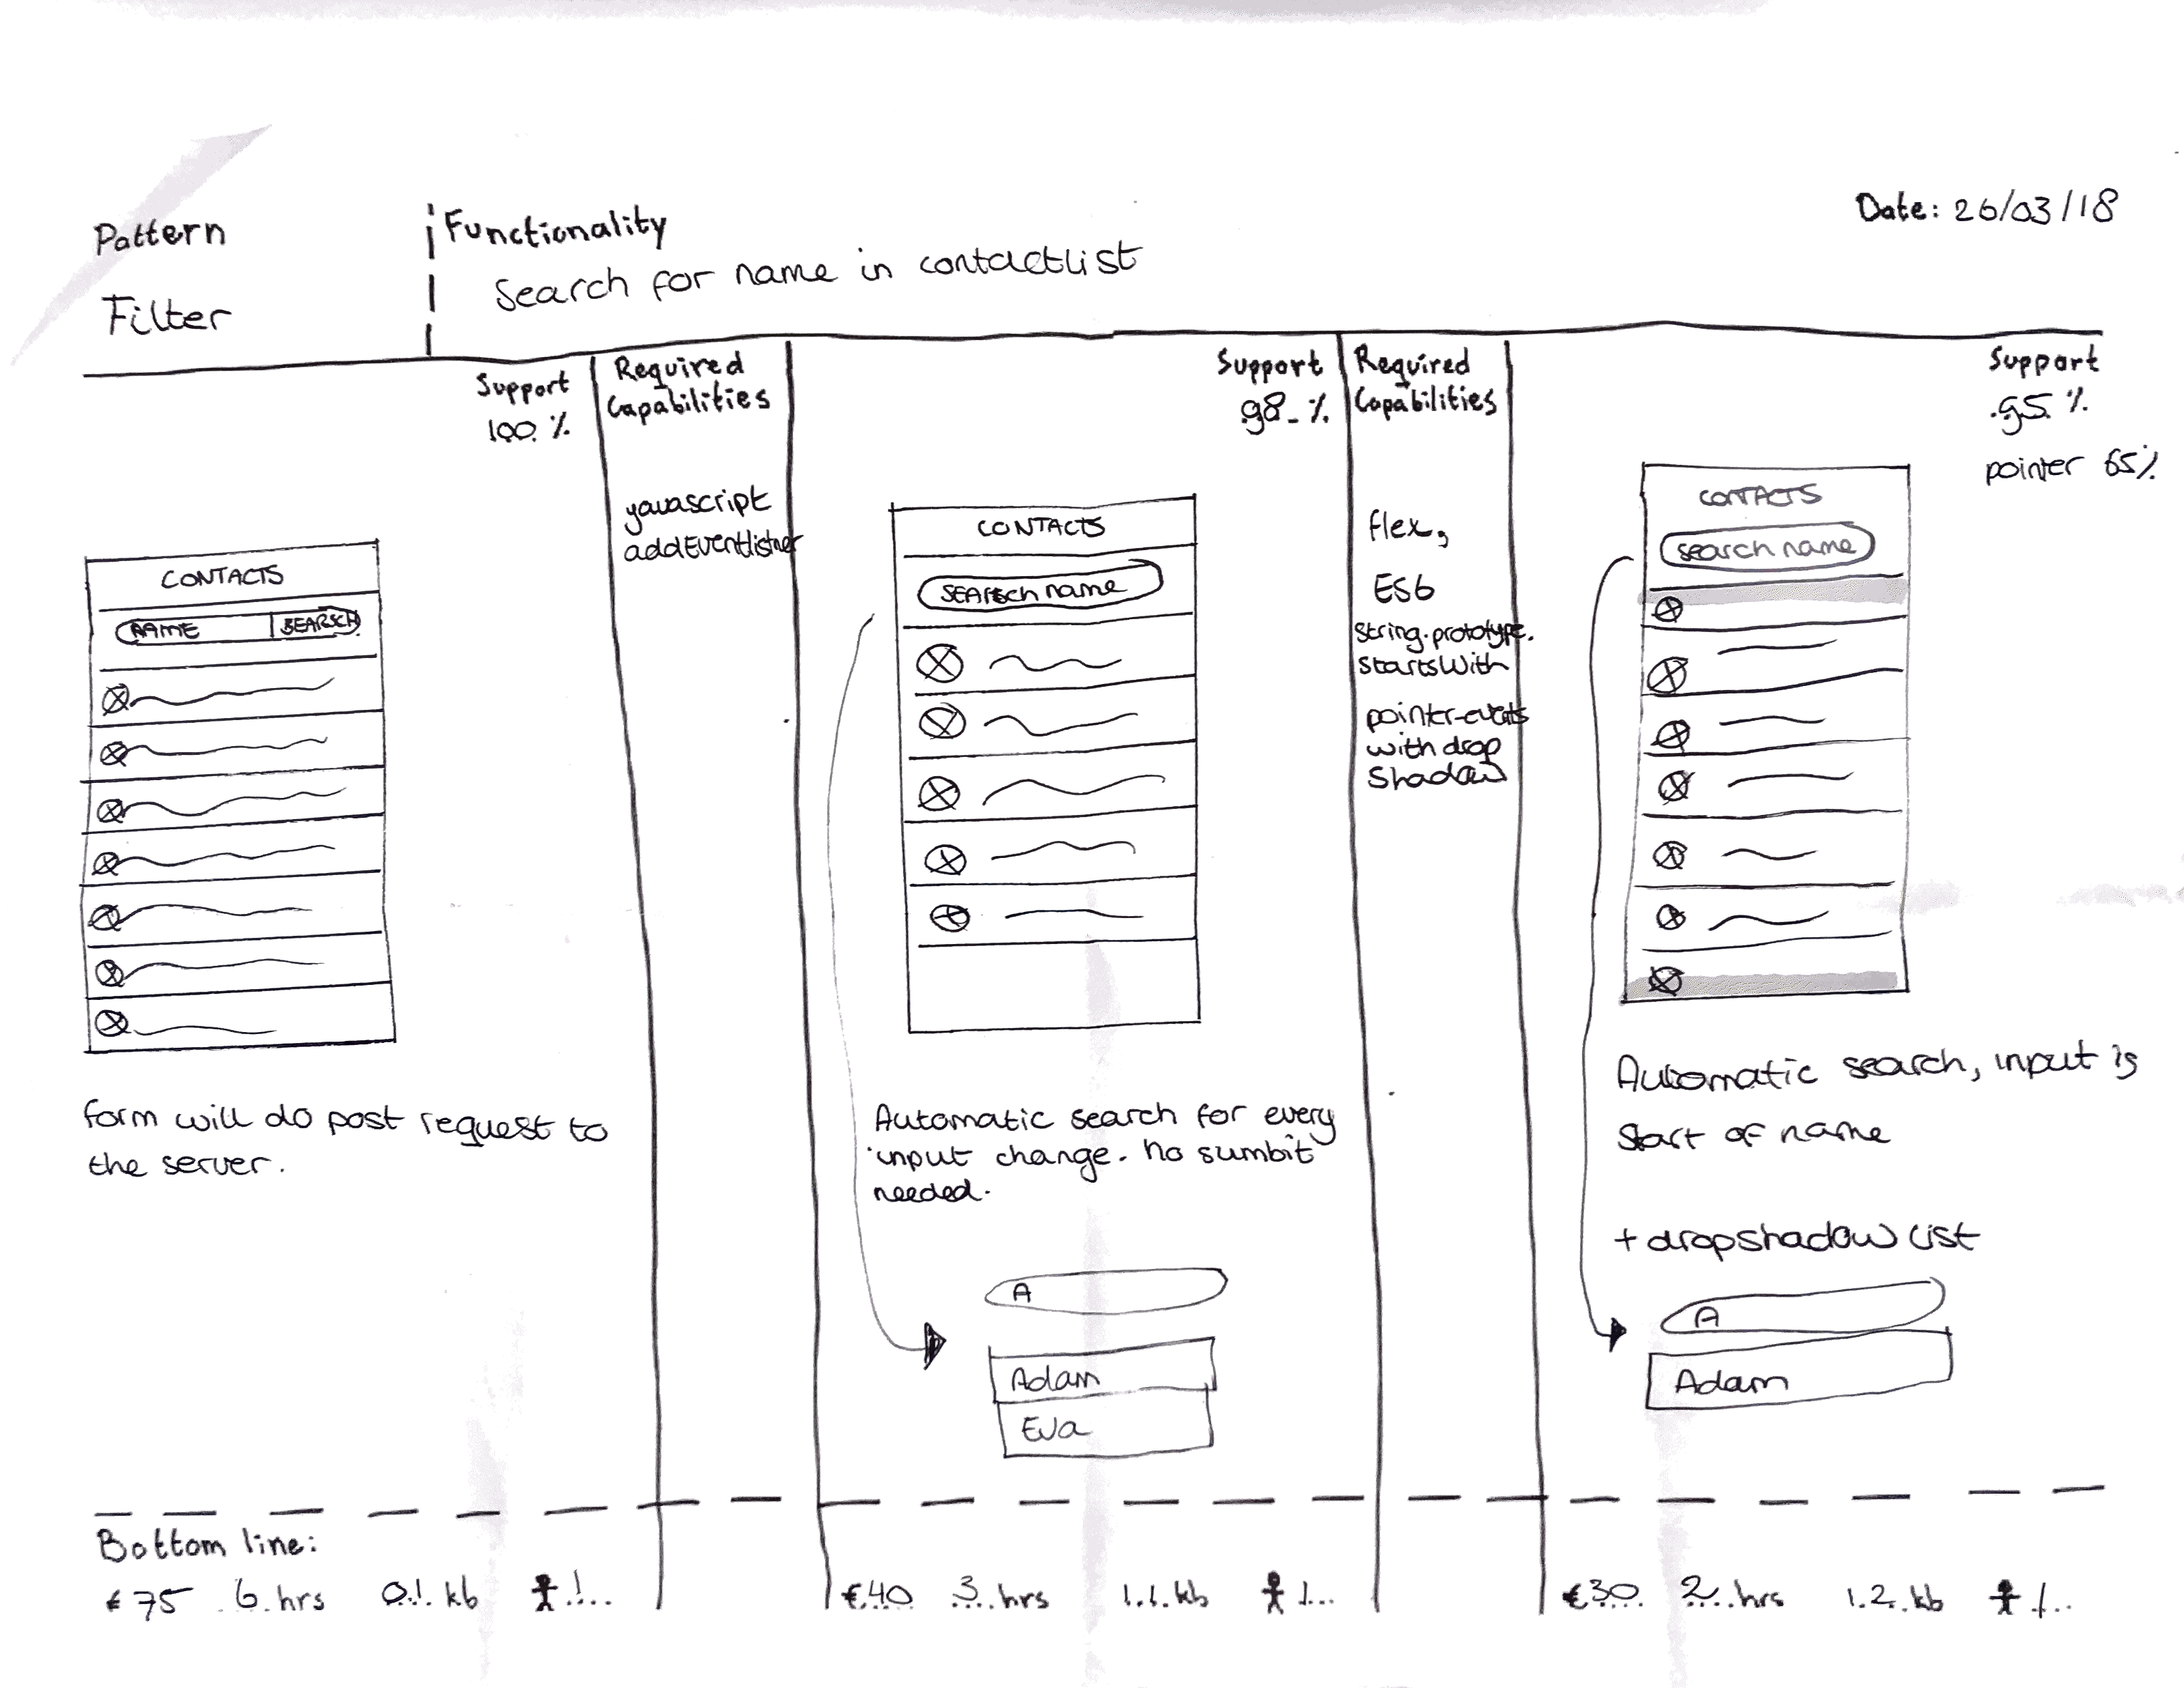 Pattern
Filter
Functionality
Search for name in contactlist
Date: 26/03/18
Support
100 %
CONTACTS
NAME SEARSCH
form will do post request to
the server.
Required
Capabilities
yavascript
addEventlistner
Support
98 %
CONTACTS
SEARSCH name
Automatic search for every
input change. No sumbit
needed.
A
Adam
Eva
Required
Capabilities
flex,
ES6
String.prototype.
startsWith
pointer-events
with drop
shadow
Support
95 %
pointer 65%
CONTACTS
search name
Automatic search, input is
start of name
+ dropshadow list
A
Adam
Bottom line:
€ 75 6 hrs 0.1 kb 1
€ 40 3 hrs 1.1 kb 1
€ 30 2 hrs 1.2 kb 1